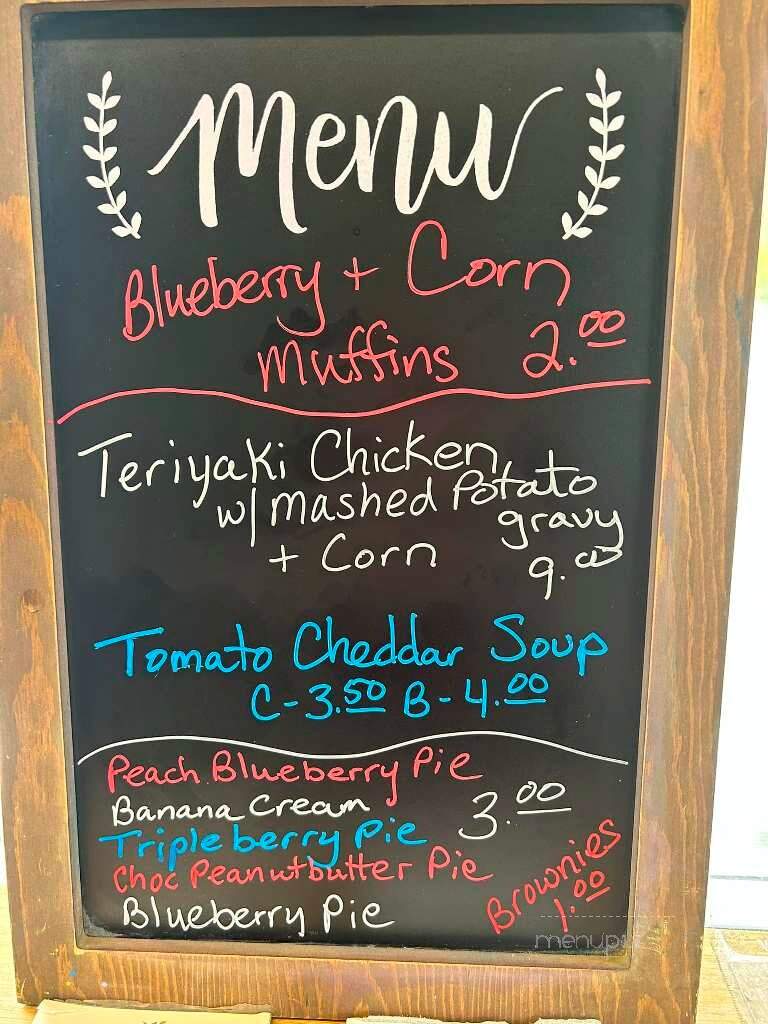 Menu
Blueberry + Corn
Muffins 2.00
Teriyaki Chicken
w/ mashed Potato
gravy
+ Corn 9.00
Tomato Cheddar Soup
C-3.50 B-4.00
Peach Blueberry Pie
Banana Cream 3.00
Triple berry Pie
Choc Peanutbutter Pie
Blueberry Pie
Brownies
1.00